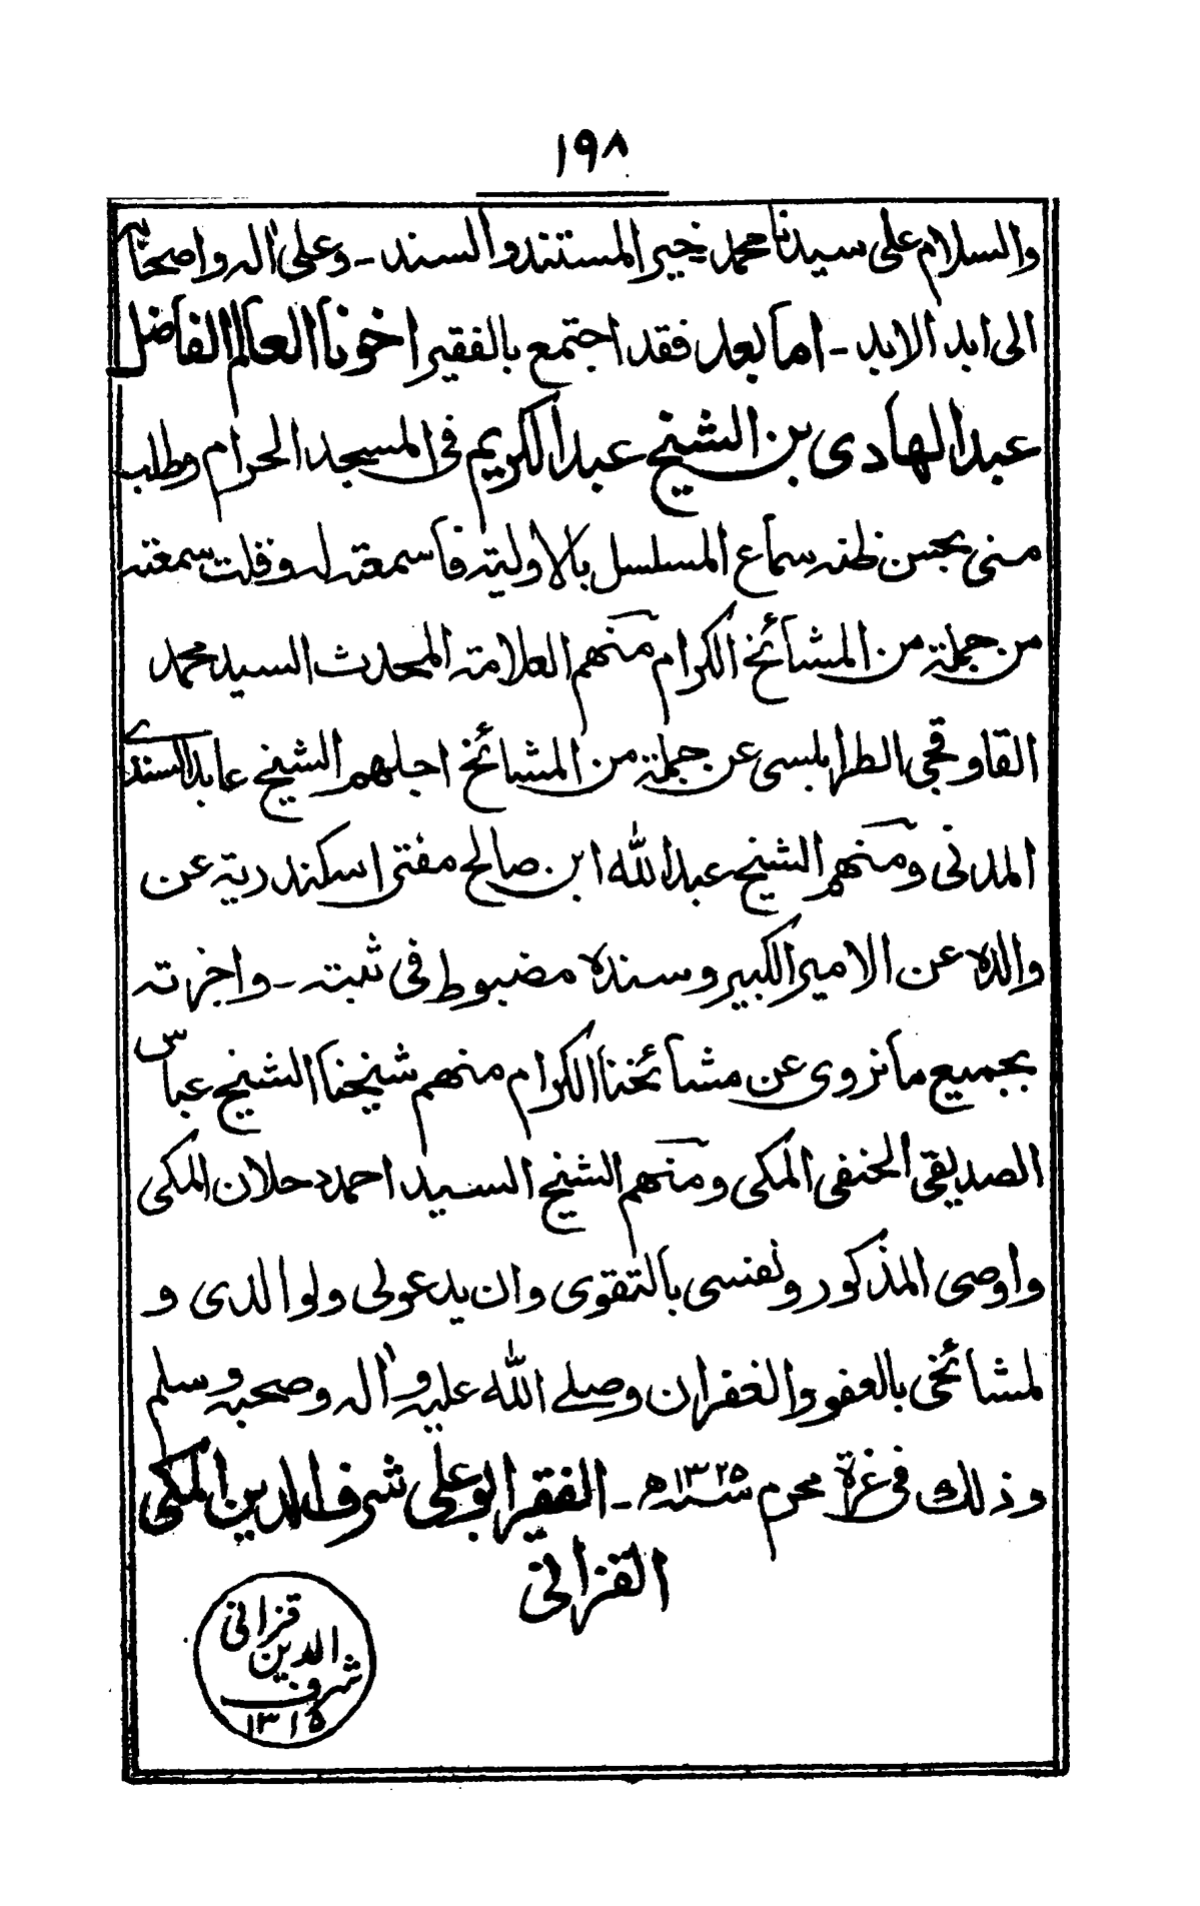 ١٩٨
والسلام على سيدنا محمد خير المستند والسند - وعلى اٰله واصحابه
الى ابد الابد - اما بعد فقد اجتمع بالفقير اخونا العالم الفاضل
عبد الهادى بن الشيخ عبد الكريم فى المسجد الحرام وطلب
منى بحسن ظنه سماع المسلسل بالاولية فأسمعته له وقلت سمعته
من جملة من المشائخ الكرام منهم العلامة المحدث السيد محمد
القاوقجى الطرابلسى عن جملة من المشائخ اجلهم الشيخ عابد السندى
المدنى ومنهم الشيخ عبد الله ابن صالح مفتى اسكندرية عن
والده عن الامير الكبير وسنده مضبوط فى ثبته - واجزته
بجميع ما نروى عن مشائخنا الكرام منهم شيخنا الشيخ عباس
الصديقى الحنفى المكى ومنهم الشيخ السيد احمد دحلان المكى
واوصى المذكور ونفسى بالتقوى وان يدعولى ولوالدى و
لمشائخى بالعفو والغفران وصلى الله عليه واٰله وصحبه وسلم
وذلك فى غرة محرم سنة ١٣٢٥ه - الفقير ابو على شرف الدين المكى
القزانى
قزانى
الدين
شرف
١٣١٥